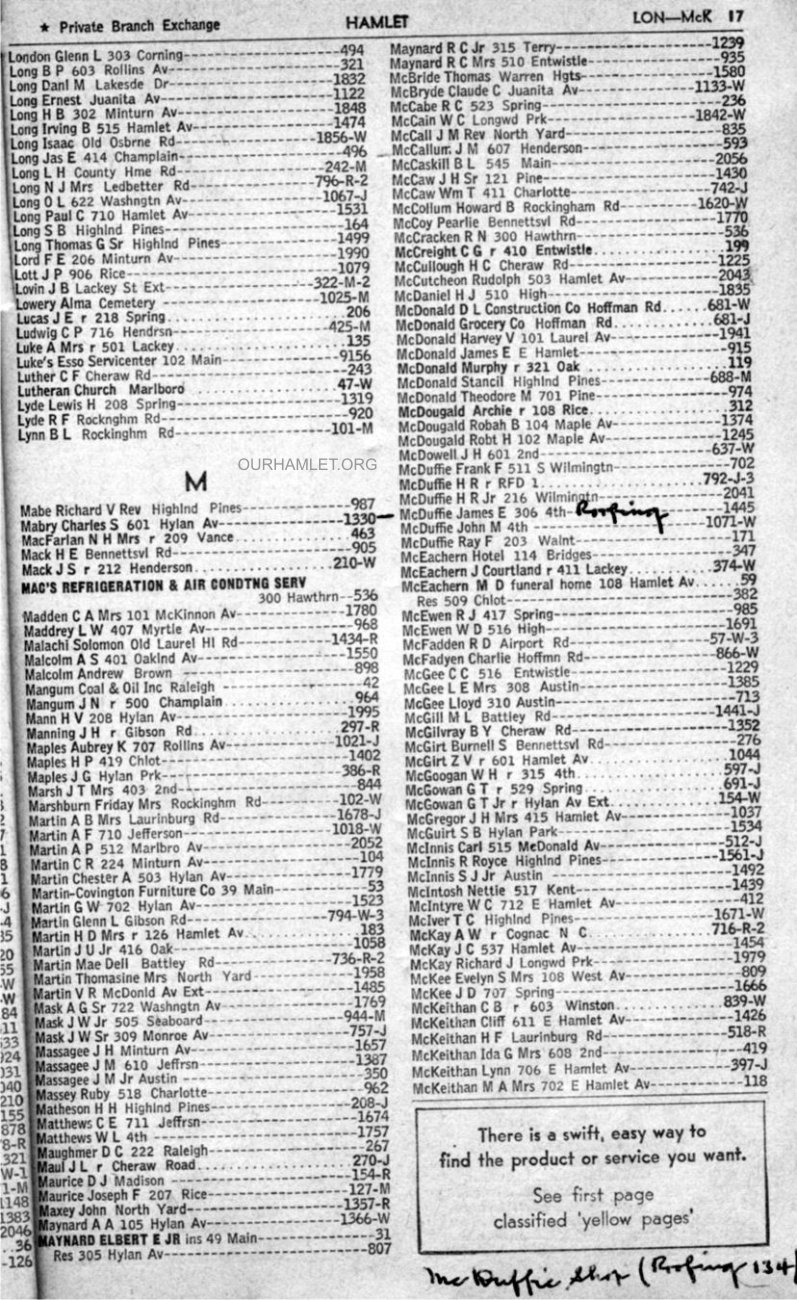 ★ Private Branch Exchange
HAMLET
LON—McK 17
London Glenn L 303 Corning-----494
Long B P 603 Rollins Av-----321
Long Danl M Lakesde Dr-----1832
Long Ernest Juanita Av-----1122
Long H B 302 Minturn Av-----1848
Long Irving B 515 Hamlet Av-----1474
Long Isaac Old Osbrne Rd-----1856-W
Long Jas E 414 Champlain-----496
Long L H County Hme Rd-----242-M
Long N J Mrs Ledbetter Rd-----796-R-2
Long O L 622 Washngtn Av-----1067-J
Long Paul C 710 Hamlet Av-----1531
Long S B Highlnd Pines-----164
Long Thomas G Sr Highlnd Pines-----1499
Lord F E 206 Minturn Av-----1990
Lott J P 906 Rice-----1079
Lovin J B Lackey St Ext-----322-M-2
Lowery Alma Cemetery -----1025-M
Lucas J E r 218 Spring.....206
Ludwig C P 716 Hendrsn-----425-M
Luke A Mrs r 501 Lackey.....135
Luke's Esso Servicenter 102 Main-----9156
Luther C F Cheraw Rd-----243
Lutheran Church Marlboro .....47-W
Lyde Lewis H 208 Spring-----1319
Lyde R F Rocknghm Rd-----920
Lynn B L Rockinghm Rd-----101-M
OURHAMLET.ORG
M
Mabe Richard V Rev Highlnd Pines-----987
Mabry Charles S 601 Hylan Av-----1330
MacFarlan N H Mrs r 209 Vance.....463
Mack H E Bennettsvl Rd-----905
Mack J S r 212 Henderson.....210-W
MAC'S REFRIGERATION & AIR CONDTNG SERV
300 Hawthrn--536
Madden C A Mrs 101 McKinnon Av-----1780
Maddrey L W 407 Myrtle Av-----968
Malachi Solomon Old Laurel Hl Rd-----1434-R
Malcolm A S 401 Oaklnd Av-----1550
Malcolm Andrew Brown -----898
Mangum Coal & Oil Inc Raleigh -----42
Mangum J N r 500 Champlain.....964
Mann H V 208 Hylan Av-----1995
Manning J H r Gibson Rd.....297-R
Maples Aubrey K 707 Rollins Av-----1021-J
Maples H P 419 Chlot-----1402
Maples J G Hylan Prk-----386-R
Marsh J T Mrs 403 2nd-----844
Marshburn Friday Mrs Rockinghm Rd-----102-W
Martin A B Mrs Laurinburg Rd-----1678-J
Martin A F 710 Jefferson-----1018-W
Martin A P 512 Marlbro Av-----2052
Martin C R 224 Minturn Av-----104
Martin Chester A 503 Hylan Av-----1779
Martin-Covington Furniture Co 39 Main-----53
Martin G W 702 Hylan Av-----1523
Martin Glenn L Gibson Rd-----794-W-3
Martin H D Mrs r 126 Hamlet Av.....183
Martin J U Jr 416 Oak-----1058
Martin Mae Dell Battley Rd-----736-R-2
Martin Thomasine Mrs North Yard-----1958
Martin V R McDonld Av Ext-----1485
Mask A G Sr 722 Washngtn Av-----1769
Mask J W Jr 505 Seaboard-----944-M
Mask J W Sr 309 Monroe Av-----757-J
Massagee J H Minturn Av-----1657
Massagee J M 610 Jeffrsn-----1387
Massagee J M Jr Austin -----350
Massey Ruby 518 Charlotte-----962
Matheson H H Highlnd Pines-----208-J
Matthews C E 711 Jeffrsn-----1674
Matthews W L 4th -----1757
Maughmer D C 222 Raleigh-----267
Maul J L r Cheraw Road.....270-J
Maurice D J Madison -----154-R
Maurice Joseph F 207 Rice-----127-M
Maxey John North Yard-----1357-R
Maynard A A 105 Hylan Av-----1366-W
MAYNARD ELBERT E JR ins 49 Main-----31
Res 305 Hylan Av-----807
Maynard R C Jr 315 Terry-----1239
Maynard R C Mrs 510 Entwistle-----935
McBride Thomas Warren Hgts-----1580
McBryde Claude C Juanita Av-----1133-W
McCabe R C 523 Spring-----236
McCain W C Longwd Prk-----1842-W
McCall J M Rev North Yard-----835
McCallum J M 607 Henderson-----593
McCaskill B L 545 Main-----2056
McCaw J H Sr 121 Pine-----1430
McCaw Wm T 411 Charlotte-----742-J
McCollum Howard B Rockingham Rd-----1620-W
McCoy Pearlie Bennettsvl Rd-----1770
McCracken R N 300 Hawthrn-----536
McCreight C G r 410 Entwistle.....199
McCullough H C Cheraw Rd-----1225
McCutcheon Rudolph 503 Hamlet Av-----2043
McDaniel H J 510 High-----1835
McDonald D L Construction Co Hoffman Rd.....681-W
McDonald Grocery Co Hoffman Rd.....681-J
McDonald Harvey V 101 Laurel Av-----1941
McDonald James E E Hamlet-----915
McDonald Murphy r 321 Oak .....119
McDonald Stancil Highlnd Pines-----688-M
McDonald Theodore M 701 Pine-----974
McDougald Archie r 108 Rice.....312
McDougald Robah B 104 Maple Av-----1374
McDougald Robt H 102 Maple Av-----1245
McDowell J H 601 2nd-----637-W
McDuffie Frank F 511 S Wilmingtn-----702
McDuffie H R r RFD 1.....792-J-3
McDuffie H R Jr 216 Wilmingtn-----2041
McDuffie James E 306 4th- Roofing -----1445
McDuffie John M 4th -----1071-W
McDuffie Ray F 203 Walnt-----171
McEachern Hotel 114 Bridges-----347
McEachern J Courtland r 411 Lackey.....374-W
McEachern M D funeral home 108 Hamlet Av.....59
Res 509 Chlot-----382
McEwen R J 417 Spring-----985
McEwen W D 516 High-----1691
McFadden R D Airport Rd-----57-W-3
McFadyen Charlie Hoffmn Rd-----866-W
McGee C C 516 Entwistle-----1229
McGee L E Mrs 308 Austin-----1385
McGee Lloyd 310 Austin-----713
McGill M L Battley Rd-----1441-J
McGilvray B Y Cheraw Rd-----1352
McGirt Burnell S Bennettsvl Rd-----276
McGirt Z V r 601 Hamlet Av.....1044
McGoogan W H r 315 4th.....597-J
McGowan G T r 529 Spring.....691-J
McGowan G T Jr r Hylan Av Ext.....154-W
McGregor J H Mrs 415 Hamlet Av-----1037
McGuirt S B Hylan Park-----1534
McInnis Carl 515 McDonald Av-----512-J
McInnis R Royce Highlnd Pines-----1561-J
McInnis S J Jr Austin -----1492
McIntosh Nettie 517 Kent-----1439
McIntyre W C 712 E Hamlet Av-----412
McIver T C Highlnd Pines-----1671-W
McKay A W r Cognac N C.....716-R-2
McKay J C 537 Hamlet Av-----1454
McKay Richard J Longwd Prk-----1979
McKee Evelyn S Mrs 108 West Av-----809
McKee J D 707 Spring-----1666
McKeithan C B r 603 Winston.....839-W
McKeithan Cliff 611 E Hamlet Av-----1426
McKeithan H F Laurinburg Rd-----518-R
McKeithan Ida G Mrs 608 2nd-----419
McKeithan Lynn 706 E Hamlet Av-----397-J
McKeithan M A Mrs 702 E Hamlet Av-----118
There is a swift, easy way to
find the product or service you want.
See first page
classified 'yellow pages'
McDuffie Shop (Roofing 134)